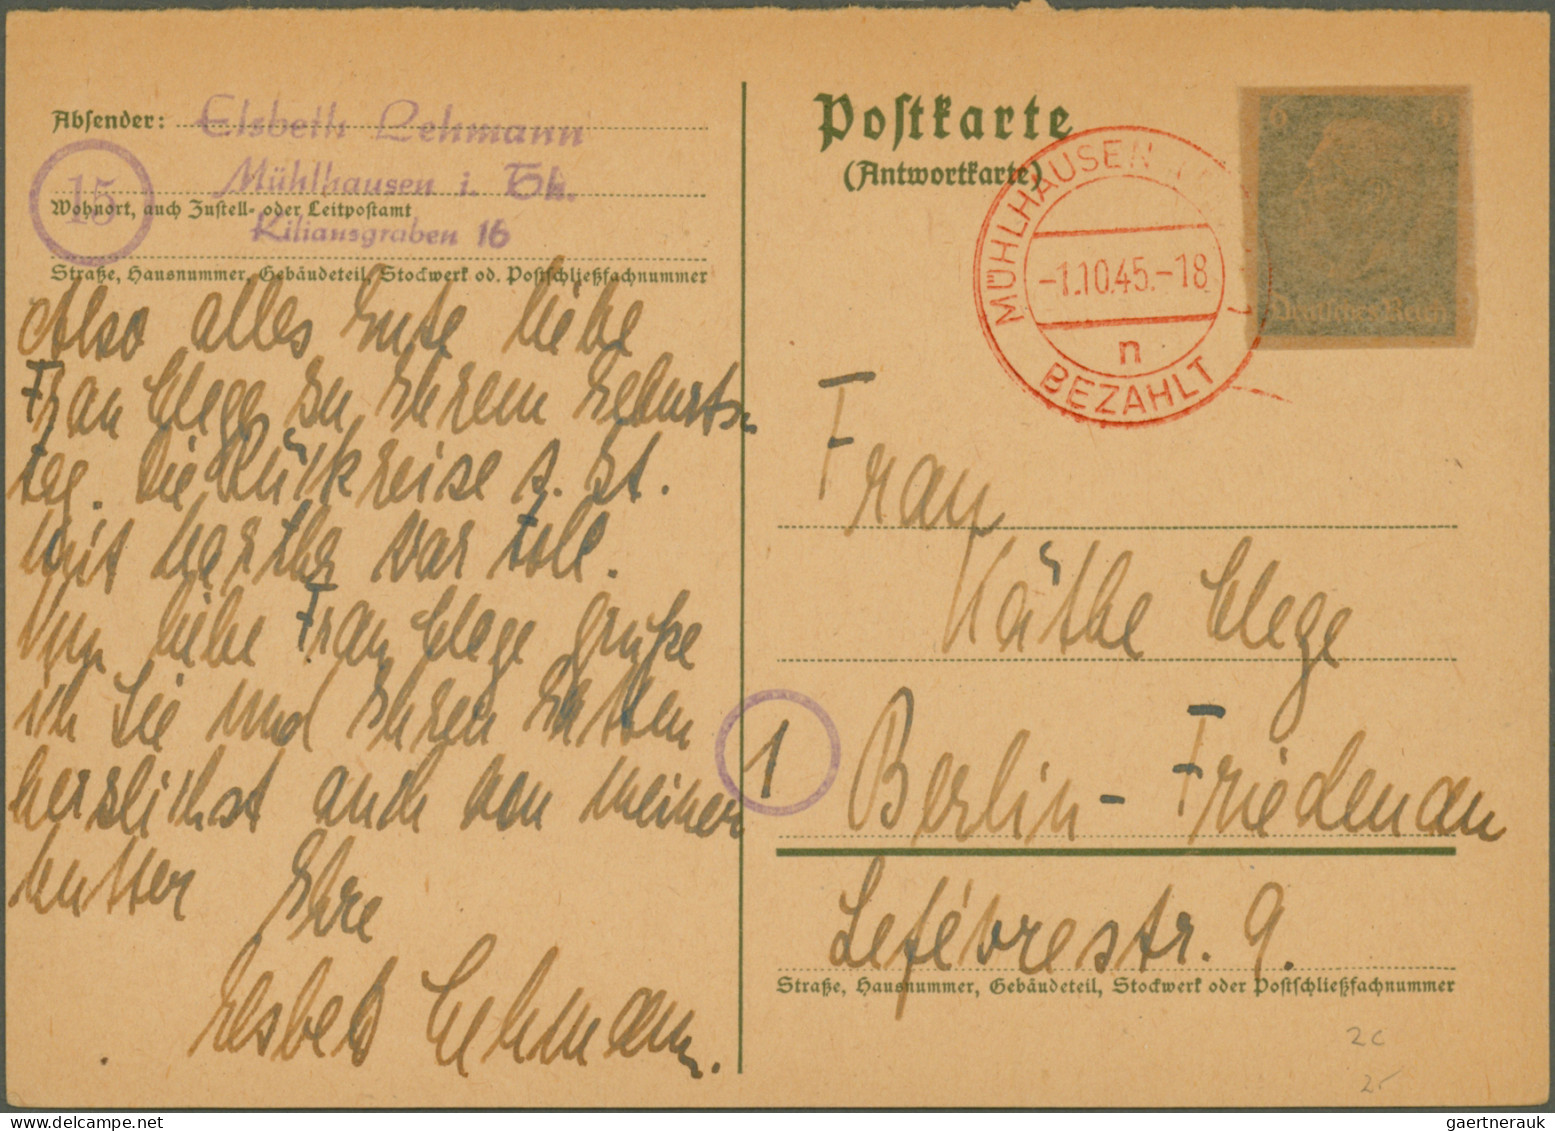 Absender: Elsbeth Lehmann
Mühlhausen i. Th.
15
Wohnort, auch Zustell- oder Leitpostamt
Kiliansgraben 16
Straße, Hausnummer, Gebäudeteil, Stockwerk od. Postschließfachnummer
Also alles Gute liebe
Frau Clege zu Ihrem Geburts-
tag. Die Rückreise z. Zt.
mit Martha war toll.
Nun liebe Frau Clege grüße
ich Sie und Ihren Gatten
herzlichst auch von meiner
Mutter Ihre
Elsbeth Lehmann.
Postkarte
(Antwortkarte)
MÜHLHAUSEN
-1.10.45.-18
n
BEZAHLT
6 6
Deutsches Reich
Frau
Käthe Clege
1
Berlin-Friedenau
Lefévrestr. 9.
Straße, Hausnummer, Gebäudeteil, Stockwerk oder Postschließfachnummer
2c
25
gaertnerauk @ delcampe